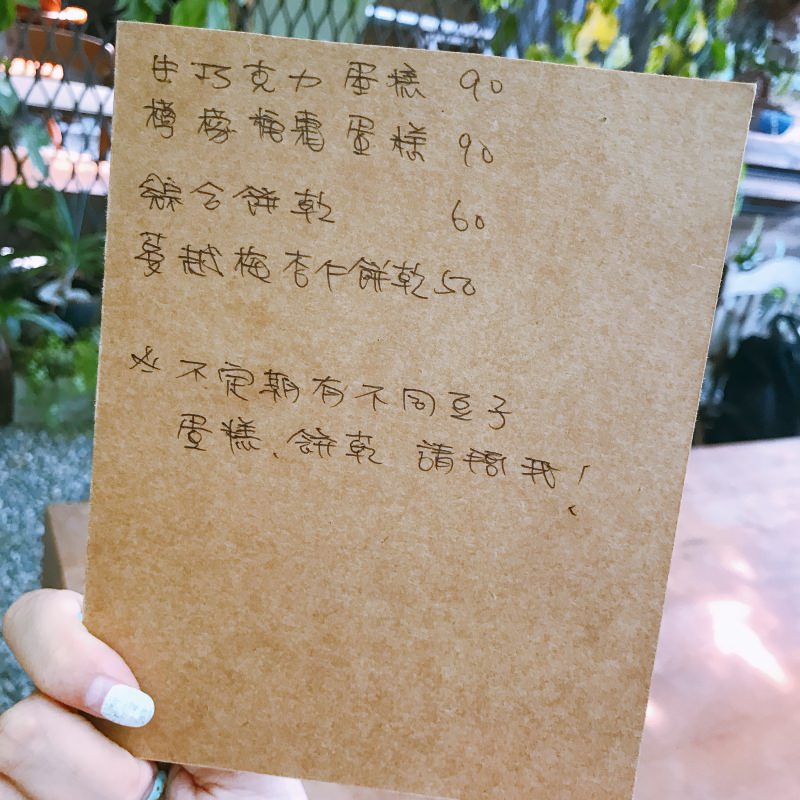 生巧克力蛋糕 90
檸檬糖霜蛋糕 90
綜合餅乾 60
蔓越梅杏仁餅乾 50
※不定期有不同豆子
蛋糕、餅乾 請播我!